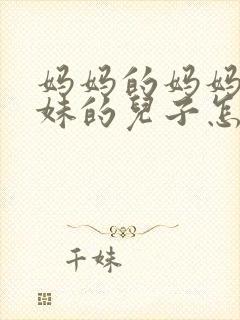 妈妈的妈妈
妹的兒子怎
千妹